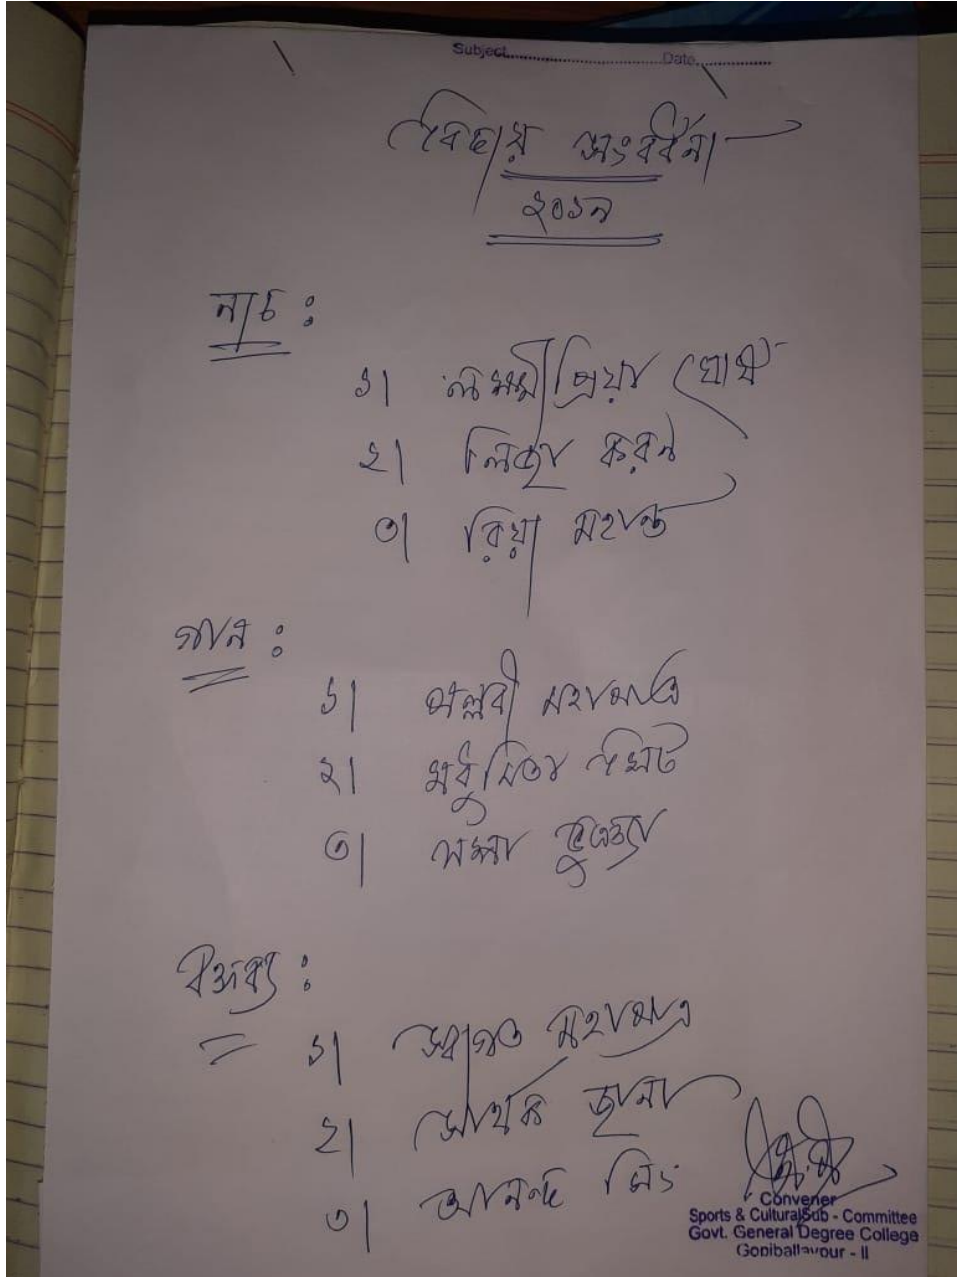 Subject.......................................Date..................
বিদায় সংবর্ধনা
২০১৯
নাচ :
১| লক্ষ্মীপ্রিয়া ঘোষ
২| লিজা করণ
৩| রিয়া মহান্ত
গান :
১| পল্লবী মহাপাত্র
২| মধুমিতা
৩|
বক্তব্য :
১| স্বাগত মহাপাত্র
২| সার্থক জানা
৩| আনন্দ সিং
Convener
Sports & Cultural Sub - Committee
Govt. General Degree College
Gopiballavpur - II